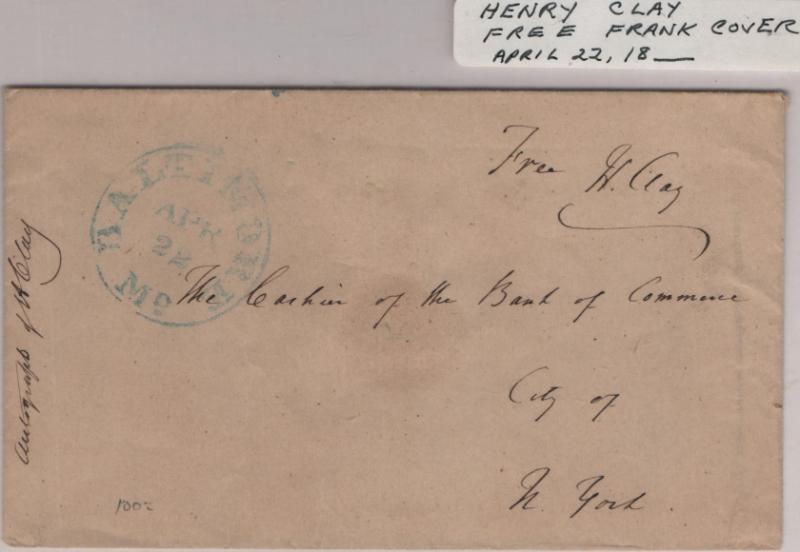 HENRY CLAY
FREE FRANK COVER
APRIL 22, 18__
Free H. Clay
BALTIMORE Md.
APR
22
The Cashier of the Bank of Commerce
City of
N. York
Autograph of H Clay
100=